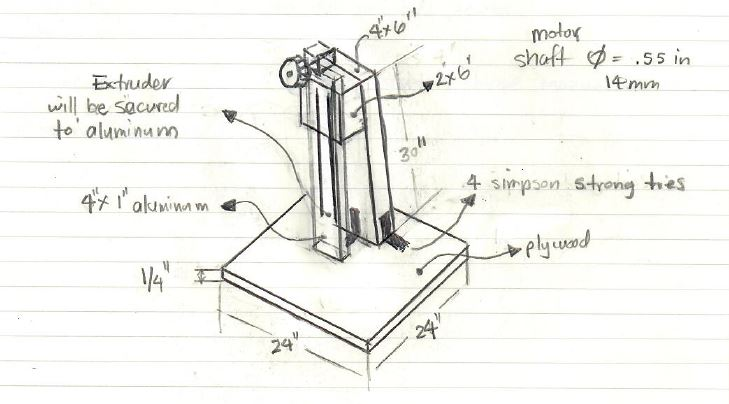 4"x6"
motor
shaft Ø = .55 in
14mm
2x6'
Extruder
will be secured
to aluminum
30"
4 simpson strong ties
4"x 1" aluminum
plywood
1/4"
24"
24"